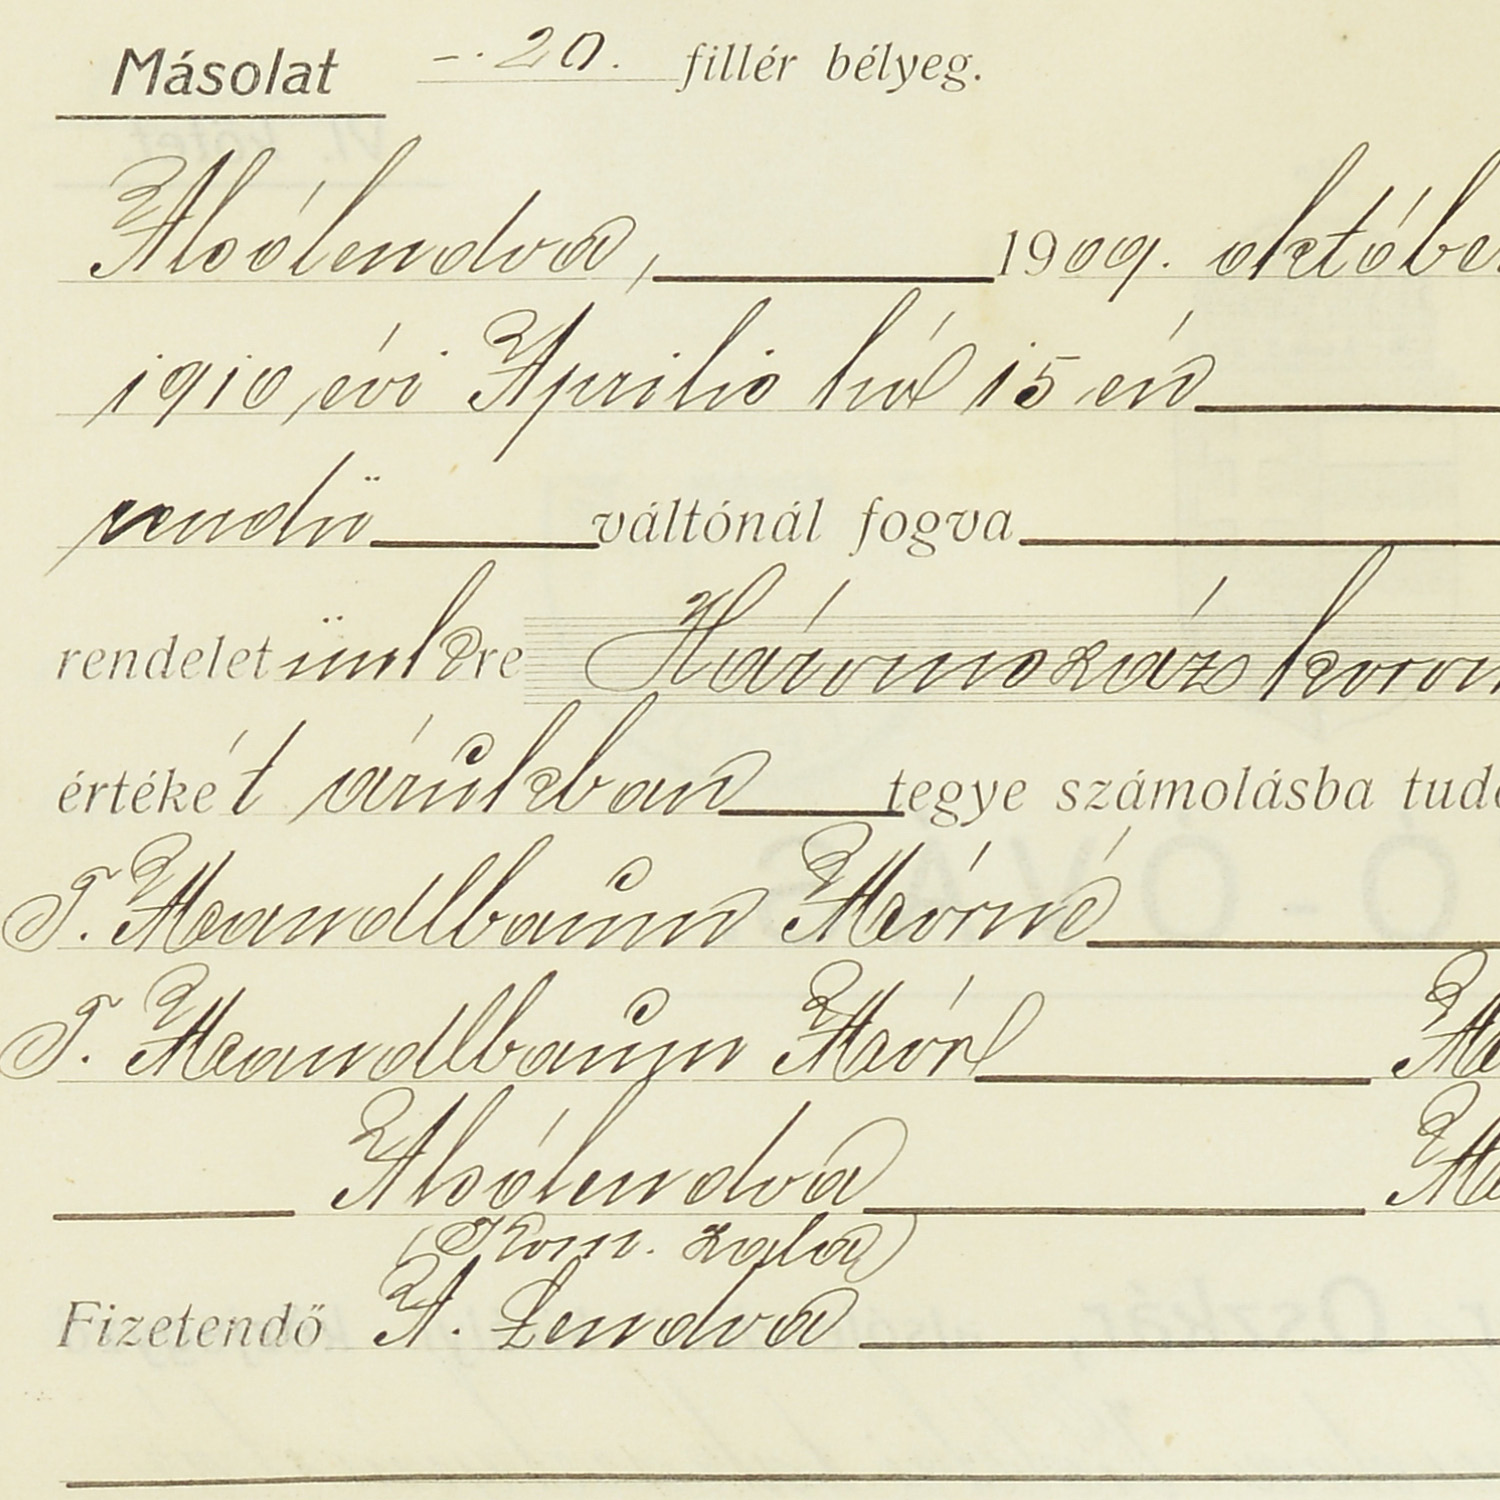 Másolat -.20. fillér bélyeg.
Alsólendva, 1909. októbe
1910 évi Aprilis hó 15 én
rendü váltónál fogva
rendeletünkre Háromszáz koron
értékét árukban tegye számolásba tud
T. Mandlbaum Mórné
T. Mandlbaum Mór M
Alsólendva M
(Kom. Zala)
Fizetendő A. Lendva